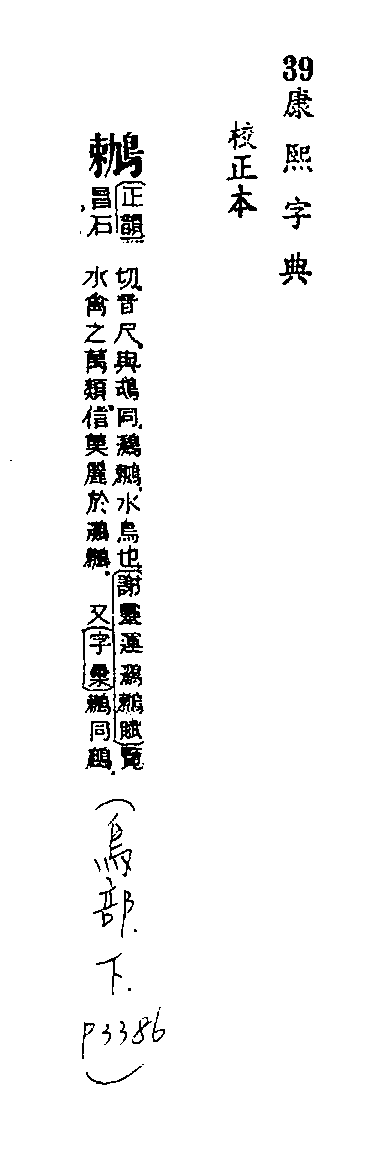 39康熙字典
校正本
鶒
正韻
昌石
切音尺與同鸂鶒水鳥也謝靈運鸂鶒賦覽
水禽之萬類信莫麗於鸂鶒.又字彙鶒同.
(鳥部.下.P3386)